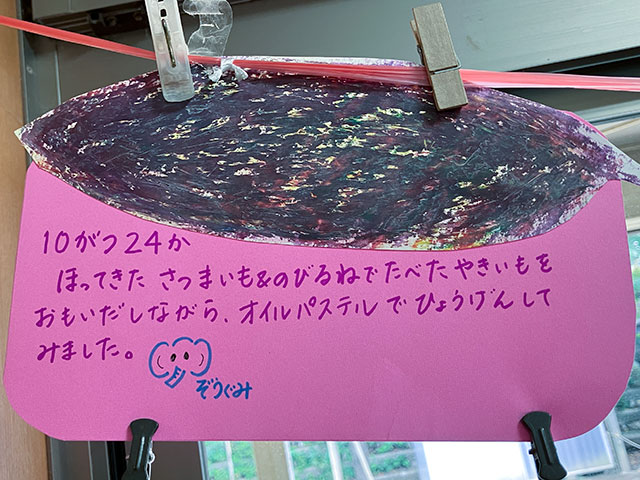 10がつ24か
ほってきた さつまいも&のびるねでたべた やきいもを
おもいだしながら、オイルパステルでひょうげんして
みました。
ぞうぐみ